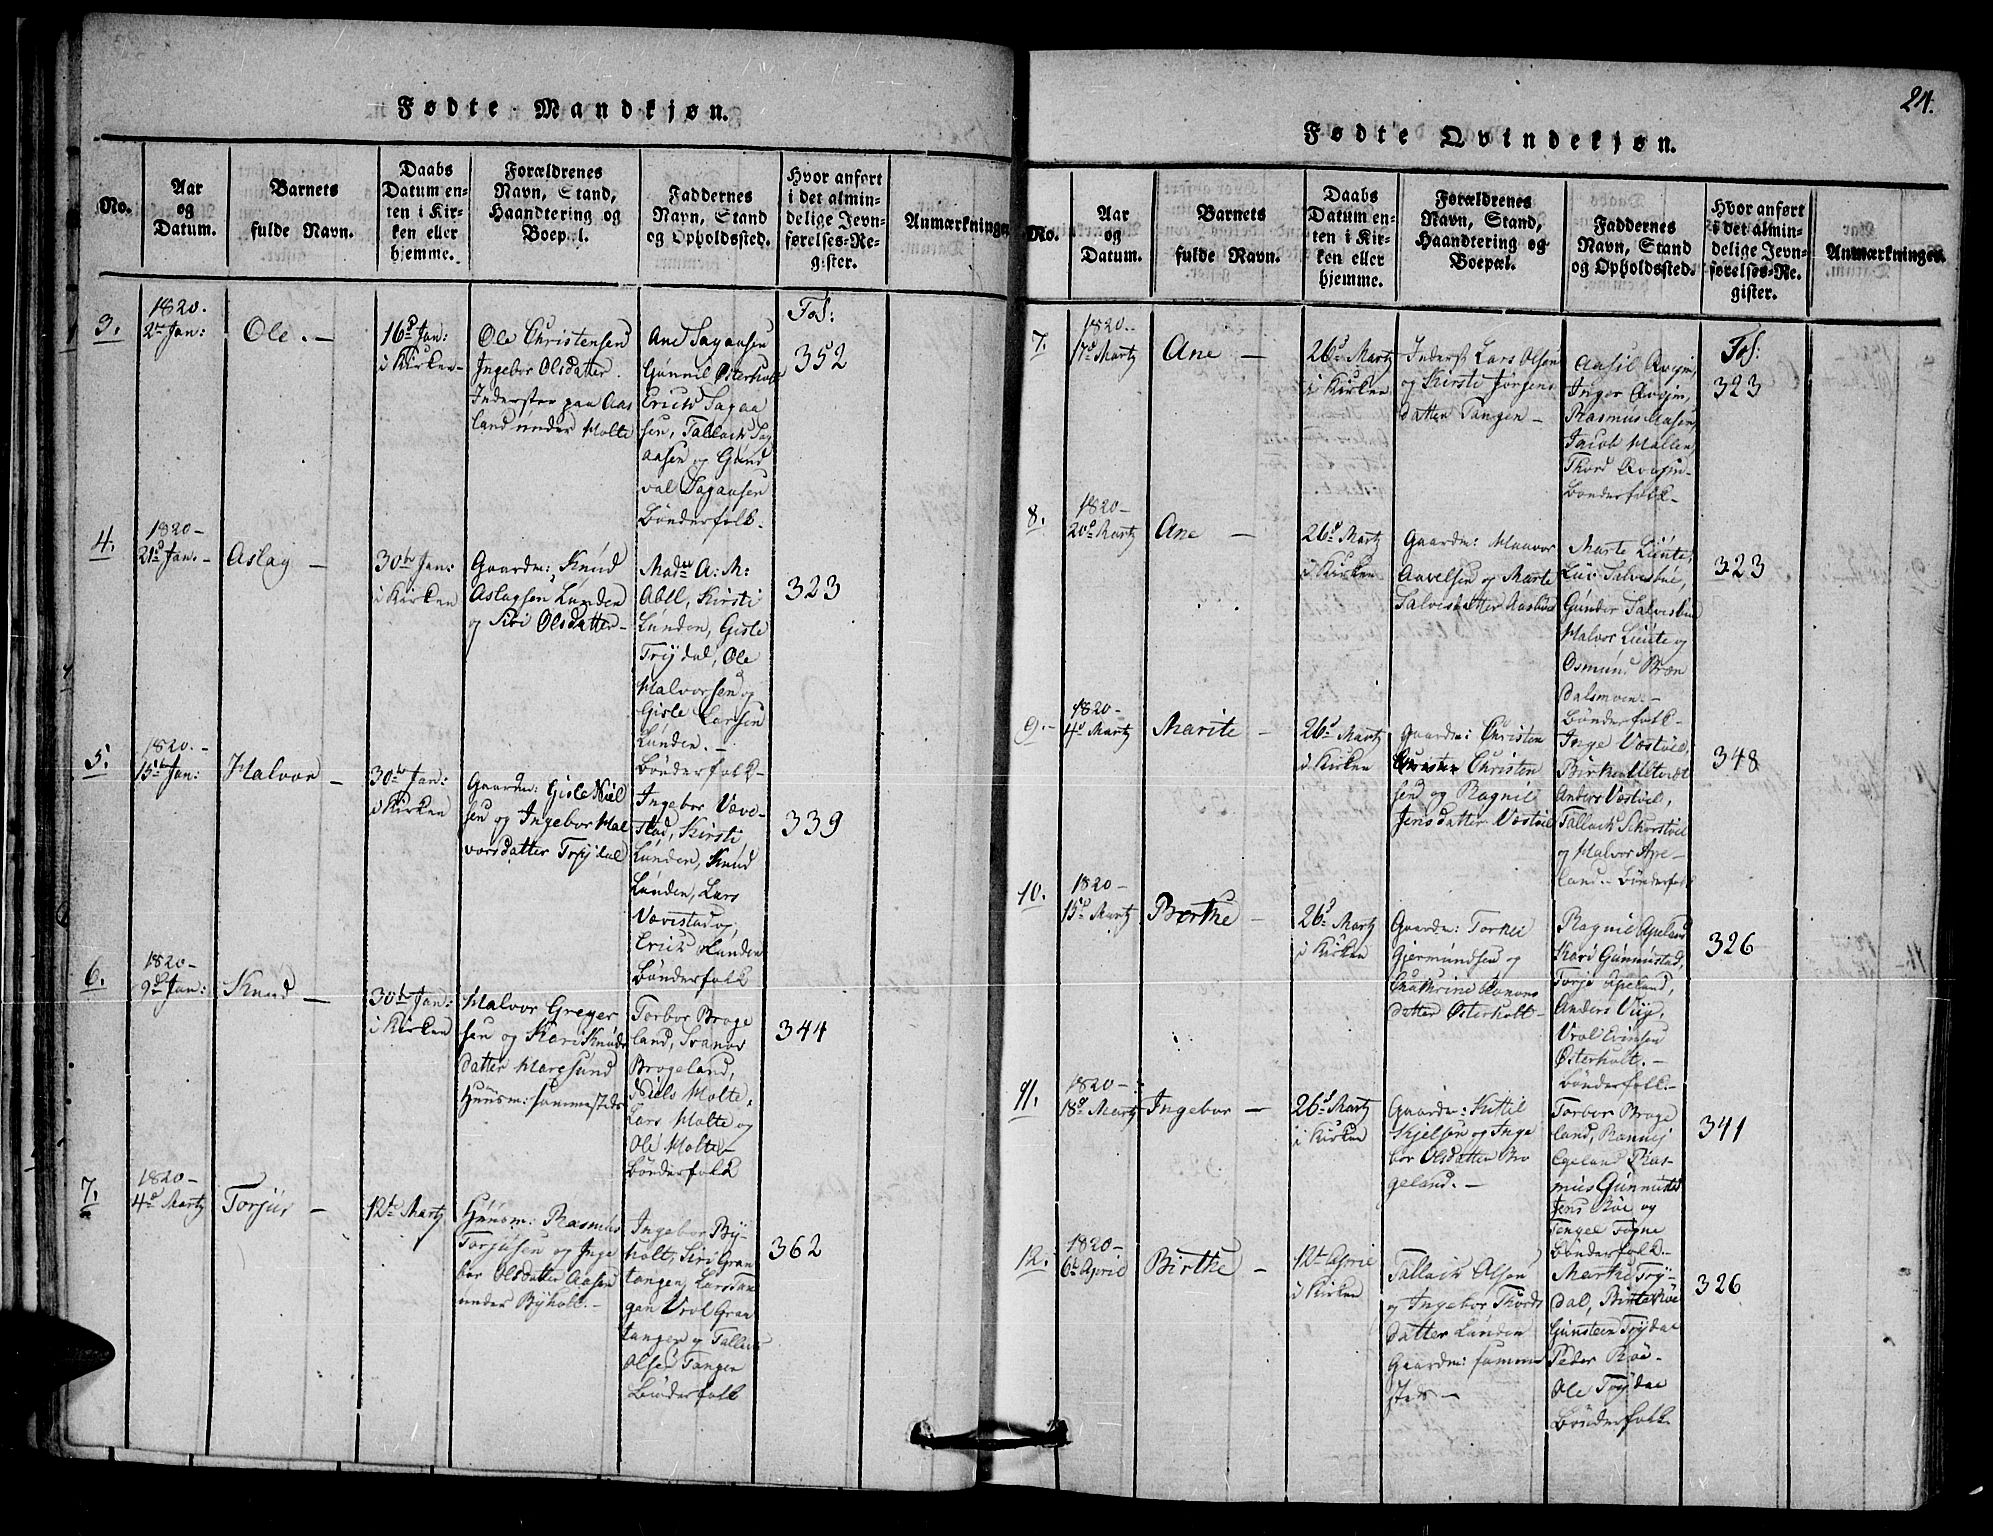 Fødte Mandkjøn.
No.
Aar
og
Datum.
Barnets
fulde Navn.
Daabs
Datum en-
ten i Kir-
ken eller
hjemme.
Forældrenes
Navn, Stand,
Haandtering og
Boepæl.
Faddernes
Navn, Stand
og Opholdssted.
Hvor anført
i det almin-
delige Jevn-
førelses-Re-
gister.
Anmærkninger
3.
1820.
2den Jan:
Ole. —
16d Jan:
i Kirken
Ole Christensen
Ingebor Olsdatter
Inderster paa Aas
land under Molte
Ane Sagaasen
Gunnil Østerholt
Erich Sagaa
sen, Tallack Sag
aasen og Gund
val Sagaasen
Bønderfolk.
Fol:
352
4.
1820 —
21d Jan. —
Aslag —
30te Jan:
i Kirken
Gaardm: Knud
Aslagsen Lunden
og Sivi Olsdatter —
Madme A: M:
Abel, Kirsti
Lunden, Gisle
Trydal, Ole
Halvorsen og
Gisle Larsen
Lunden. —
Bønderfolk —
323
5.
1820. —
15de Jan:
Halvor —
30te Jan:
i Kirken
Gaardm: Gisle Niel
sen og Ingebor Hal
vorsdatter Trydal
Ingebor Væve
stad, Kirsti
Lunden, Knud
Lunden, Lars
Vævestad og
Erich Lunden
Bønderfolk
339
6.
1820 —
9de Jan:
Knud —
30te Jan:
i Kirken
Halvor Greger
sen og Kari Knuds
datter Maresund
Huusm: sammesteds
Torbor Brage
land, Svanov
Brogeland,
Niels Molte,
Lars Molte og
Ole Molte —
Bønderfolk
344
7.
1820 —
4d Martz
Torjus —
12te Martz
Huusm: Rasmus
Torjusen og Inge
bor Olsdatter Aasen
under Byholt. —
Ingebor By-
holt, Siri Gran
tangen, Lars Tan
gan Vrol Gran
tangen og Tallev
Olsen Tangen
Bønderfolk
362
24.
Fødte Qvindekjøn.
No.
Aar
og
Datum.
Barnets
fulde Navn.
Daabs
Datum en-
ten i Kir-
ken eller
hjemme.
Forældrenes
Navn, Stand,
Haandtering og
Boepæl.
Faddernes
Navn, Stand
og Opholdssted.
Hvor anført
i det almin-
delige Jevn-
førelses-Re-
gister.
Anmærkninger.
7.
1820 —
17d Martz
Ane —
26d Martz
i Kirken
Inderst Lars Olsen
og Kirsti Jørgens
datter Tangen —
Aasil Qvejm,
Inger Qvejm,
Rasmus Aasen,
Jacob Mollen,
Thord Qvejm —
Bønderfolk —
Fol:
323
8.
1820 —
20d Martz
Ane —
26d Martz
i Kirken
Gaardm: Haavor
Aavelsen og Marte
Salvesdatter Aasbue
Marte Liinte,
Liiv Salvesbue,
Gunder Salvesbue
Halvor Liinte og
Osmund Bræn
dalsmoen. —
Bønderfolk —
323
9. —
1820 —
4d Martz
Marite —
26d Martz
i Kirken
Gaardm: Christen
Christen
sen og Ragnil
Jensdatter Vestøel
Inge Vestøel,
Birke
Anders Vestøel,
Tallack Skorstøel
og Halvor Ape —
land. Bønderfolk
348
10.
1820 —
15d Martz
Berthe —
26d Martz
i Kirken
Gaardm: Torkel
Gjermundsen og
Chathrine Aanons
datter Østerholt —
Ragnil Apeland
Kari Gunmestad,
Torje Apeland,
Anders Viig,
Vrol Evinsen
Østerholt. —
Bønderfolk. —
326
11.
1820 —
18d Martz
Ingebor —
26d Martz
i Kirken
Gaardm: Kittil
Kjelsen og Inge
bor Olsdatter Bro
geland. —
Torbor Broge
land, Ronnej
Egeland Ras-
mus Gunmestad
Jens Røe og
Tengel Fogne
Bønderfolk —
341
12.
1820 —
6te April
Birthe —
12te April
i Kirken
Tallack Olsen
og Ingebor Thords
datter Lunden
Gaardm: samme
steds —
Marthe Try-
dal, Birte Røe
Gunsteen Trydal
Peder Røe —
Ole Trydal
Bønderfolk
326